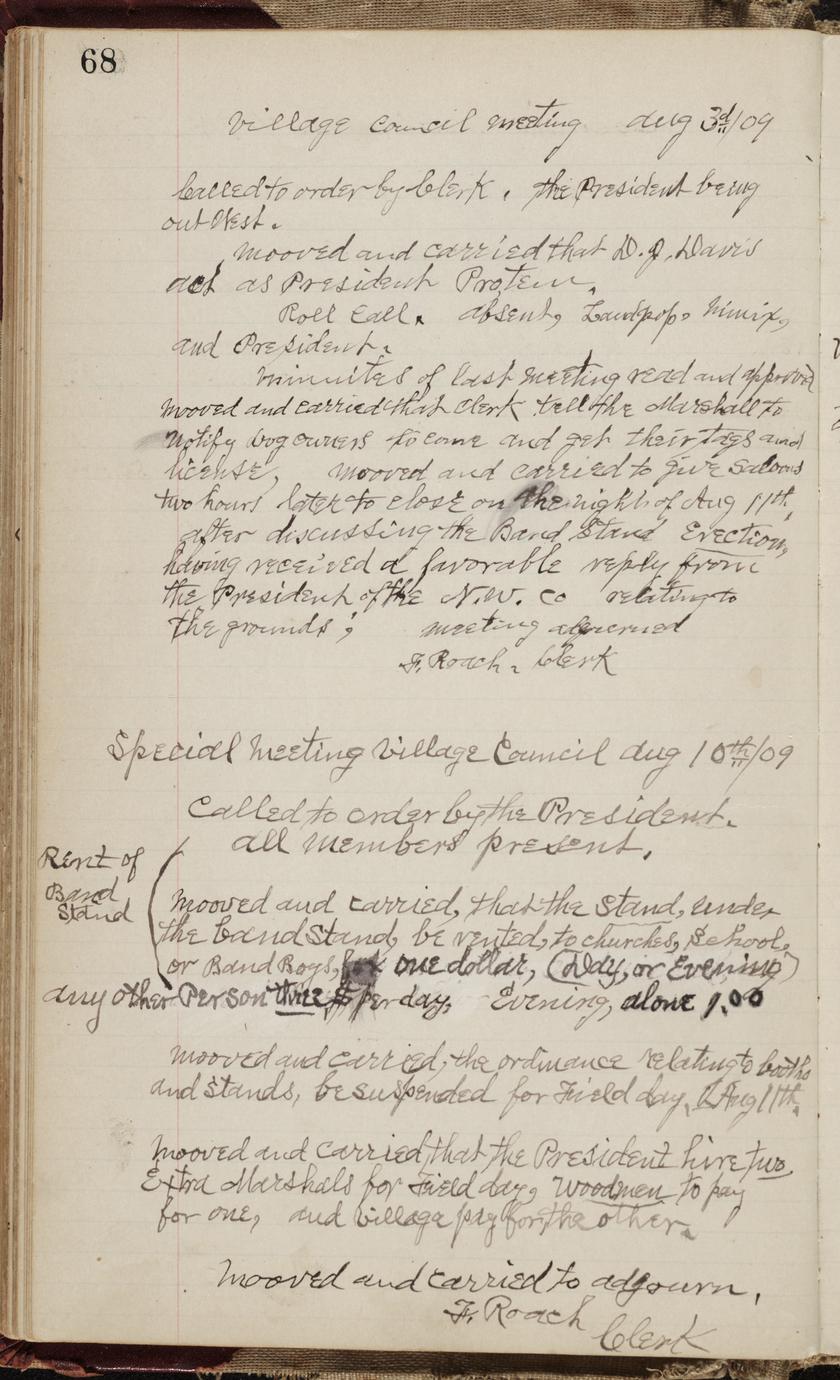 68
Village council meeting Aug 3d/09
Called to order by Clerk. the President being
out West.
mooved and carried that D. J. Davis
act as President Protem.
Roll Call. absent, Nimix,
and President.
minnuites of last meeting read and approved
mooved and carried that Clerk tell the Marshall to
Notify Dog owners to come and get their tags and
license, mooved and carried to give saloons
two hours later to close on the night of Aug 11th,
after discussing the Band Stand Erection,
having received a favorable reply from
the President of the N.W. Co relating to
the grounds; meeting
F. Roach. Clerk
Special Meeting Village Council Aug 10th/09
Called to order by the President.
all members present.
Rent of
Band
Stand
mooved and carried, that the stand, under
the band stand, be rented, to churches, School,
or Band Boys, for one dollar, (Day, or Evening)
any other Person three $ per day, Evening, alone 1.00
mooved and carried, the ordinance relating to booths
and stands, be suspended for Field day, Aug 11th.
mooved and carried that the President hire two
Extra Marshals for Field day, Woodmen to pay
for one, and village pay for the other.
Mooved and carried to adjourn.
F. Roach
Clerk